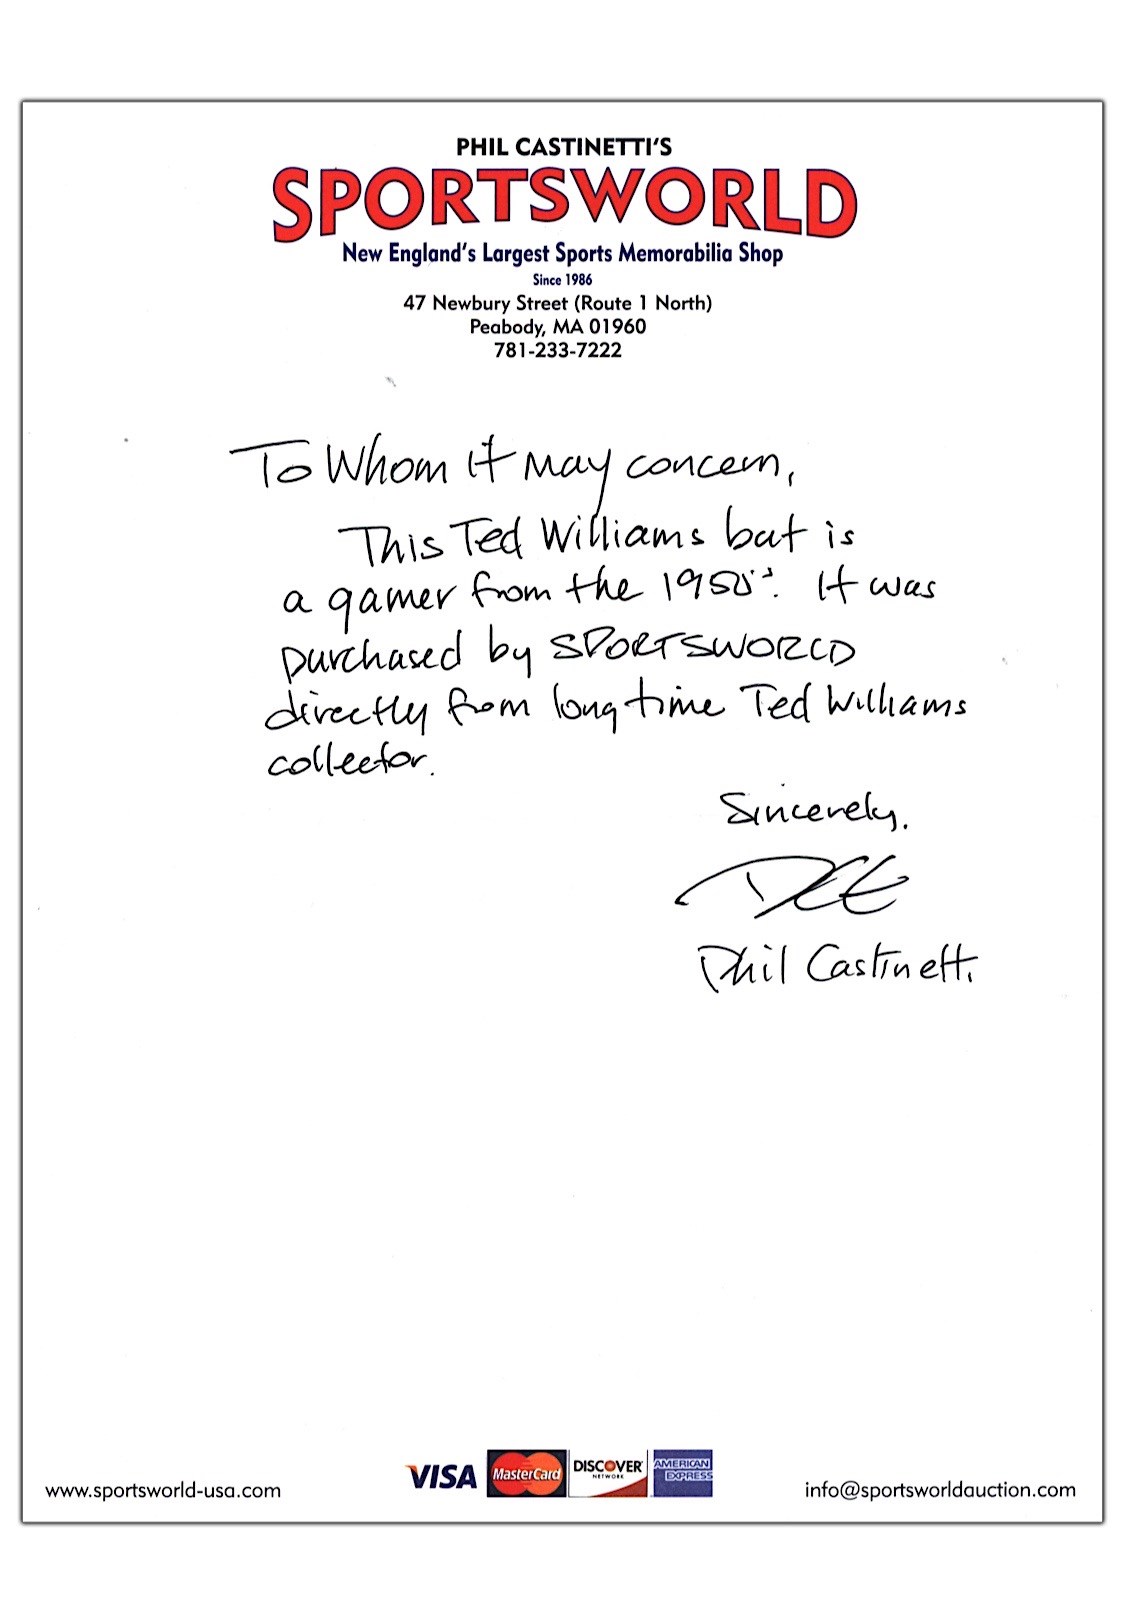 PHIL CASTINETTI'S
SPORTSWORLD
New England's Largest Sports Memorabilia Shop
Since 1986
47 Newbury Street (Route 1 North)
Peabody, MA 01960
781-233-7222
To Whom it may concern,
This Ted Williams bat is
a gamer from the 1950's. It was
purchased by SPORTSWORLD
directly from long time Ted Williams
collector.
Sincerely,
Phil Castinetti
VISA MasterCard DISCOVER NETWORK AMERICAN EXPRESS
www.sportsworld-usa.com
info@sportsworldauction.com